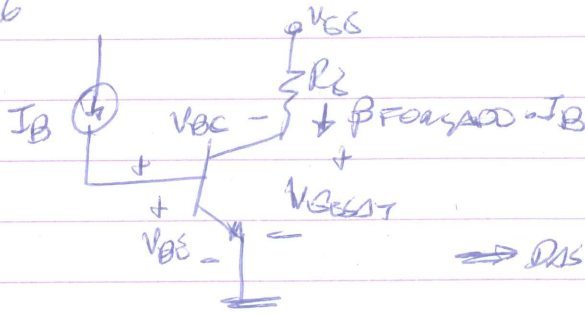 6
VCC
RC
IB
VBC - ↓ βFORÇADO · IB
+ +
+ VCESAT
VBE - -
⇒ DAS